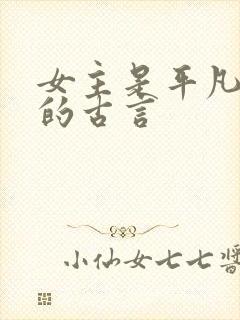 女主是平凡
的古言
小仙女七七酱